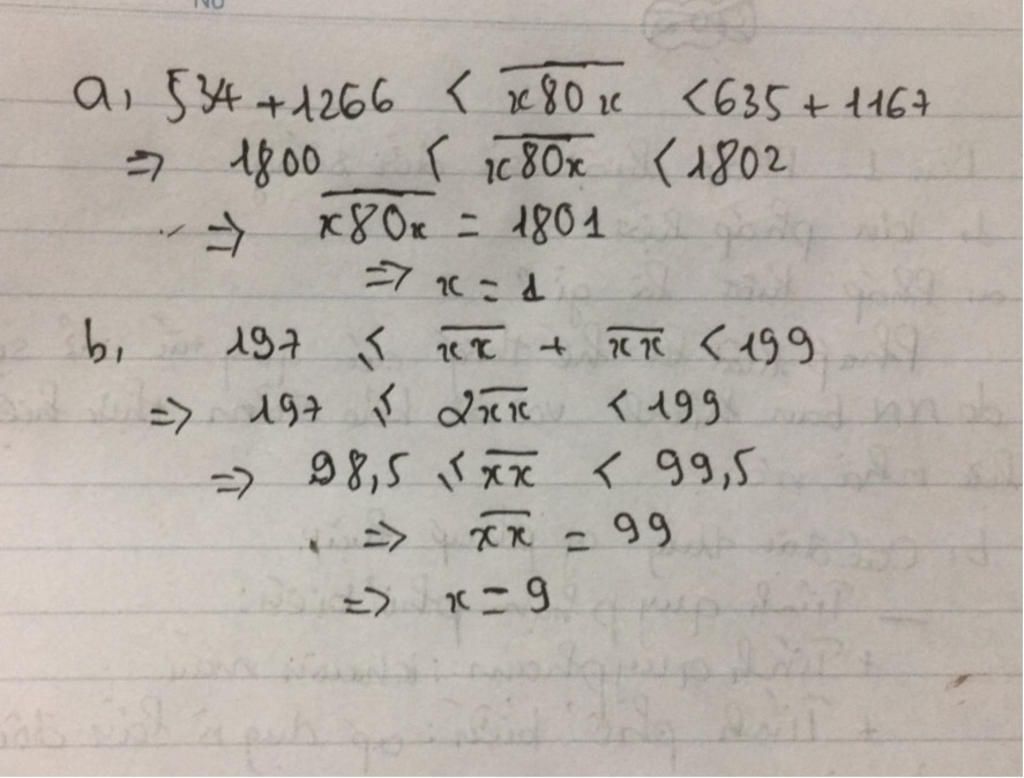 No
a, 534 + 1266 < \overline{x80x} < 635 + 1167
=> 1800 < \overline{x80x} < 1802
=> \overline{x80x} = 1801
=> x = 1
b, 197 ≤ \overline{xx} + \overline{xx} < 199
=> 197 ≤ 2\overline{xx} < 199
=> 98,5 ≤ \overline{xx} < 99,5
=> \overline{xx} = 99
=> x = 9